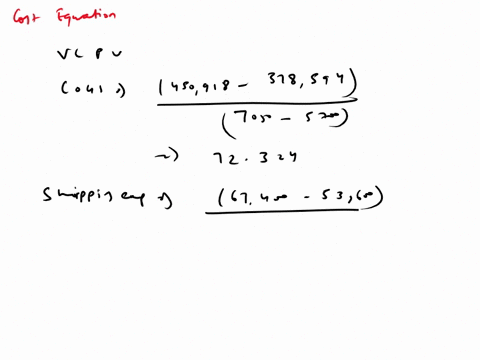 Cost Equation
VC PU
COGS ⇒ (450,918 - 378,594)
(7050 - 5200)
⇒ 72.324
Shipping exp ⇒ (67,400 - 53,600)